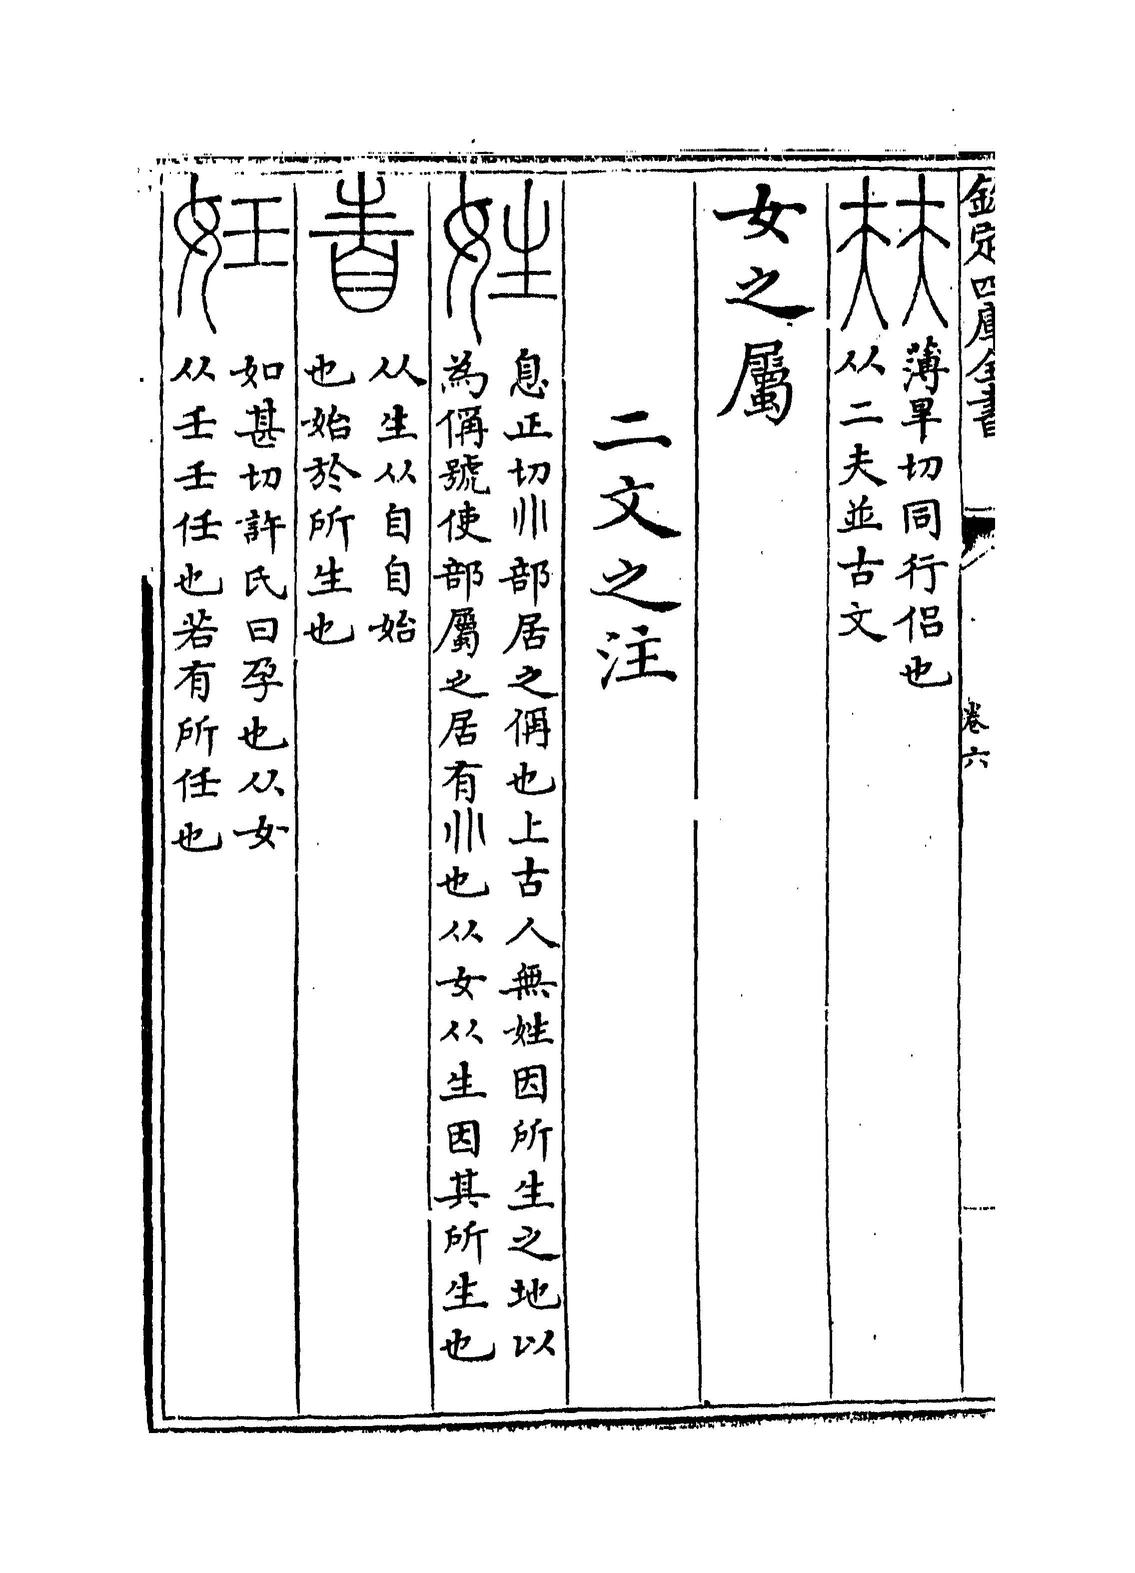 欽定四庫全書
卷六
㚘
薄旱切同行侶也
从二夫並古文
女之屬
二文之注
姓
息正切部居之偁也上古人無姓因所生之地以
為偁號使部屬之居有也从女从生因其所生也
从生从自自始
也始於所生也
妊
如甚切許氏曰孕也从女
从壬壬任也若有所任也